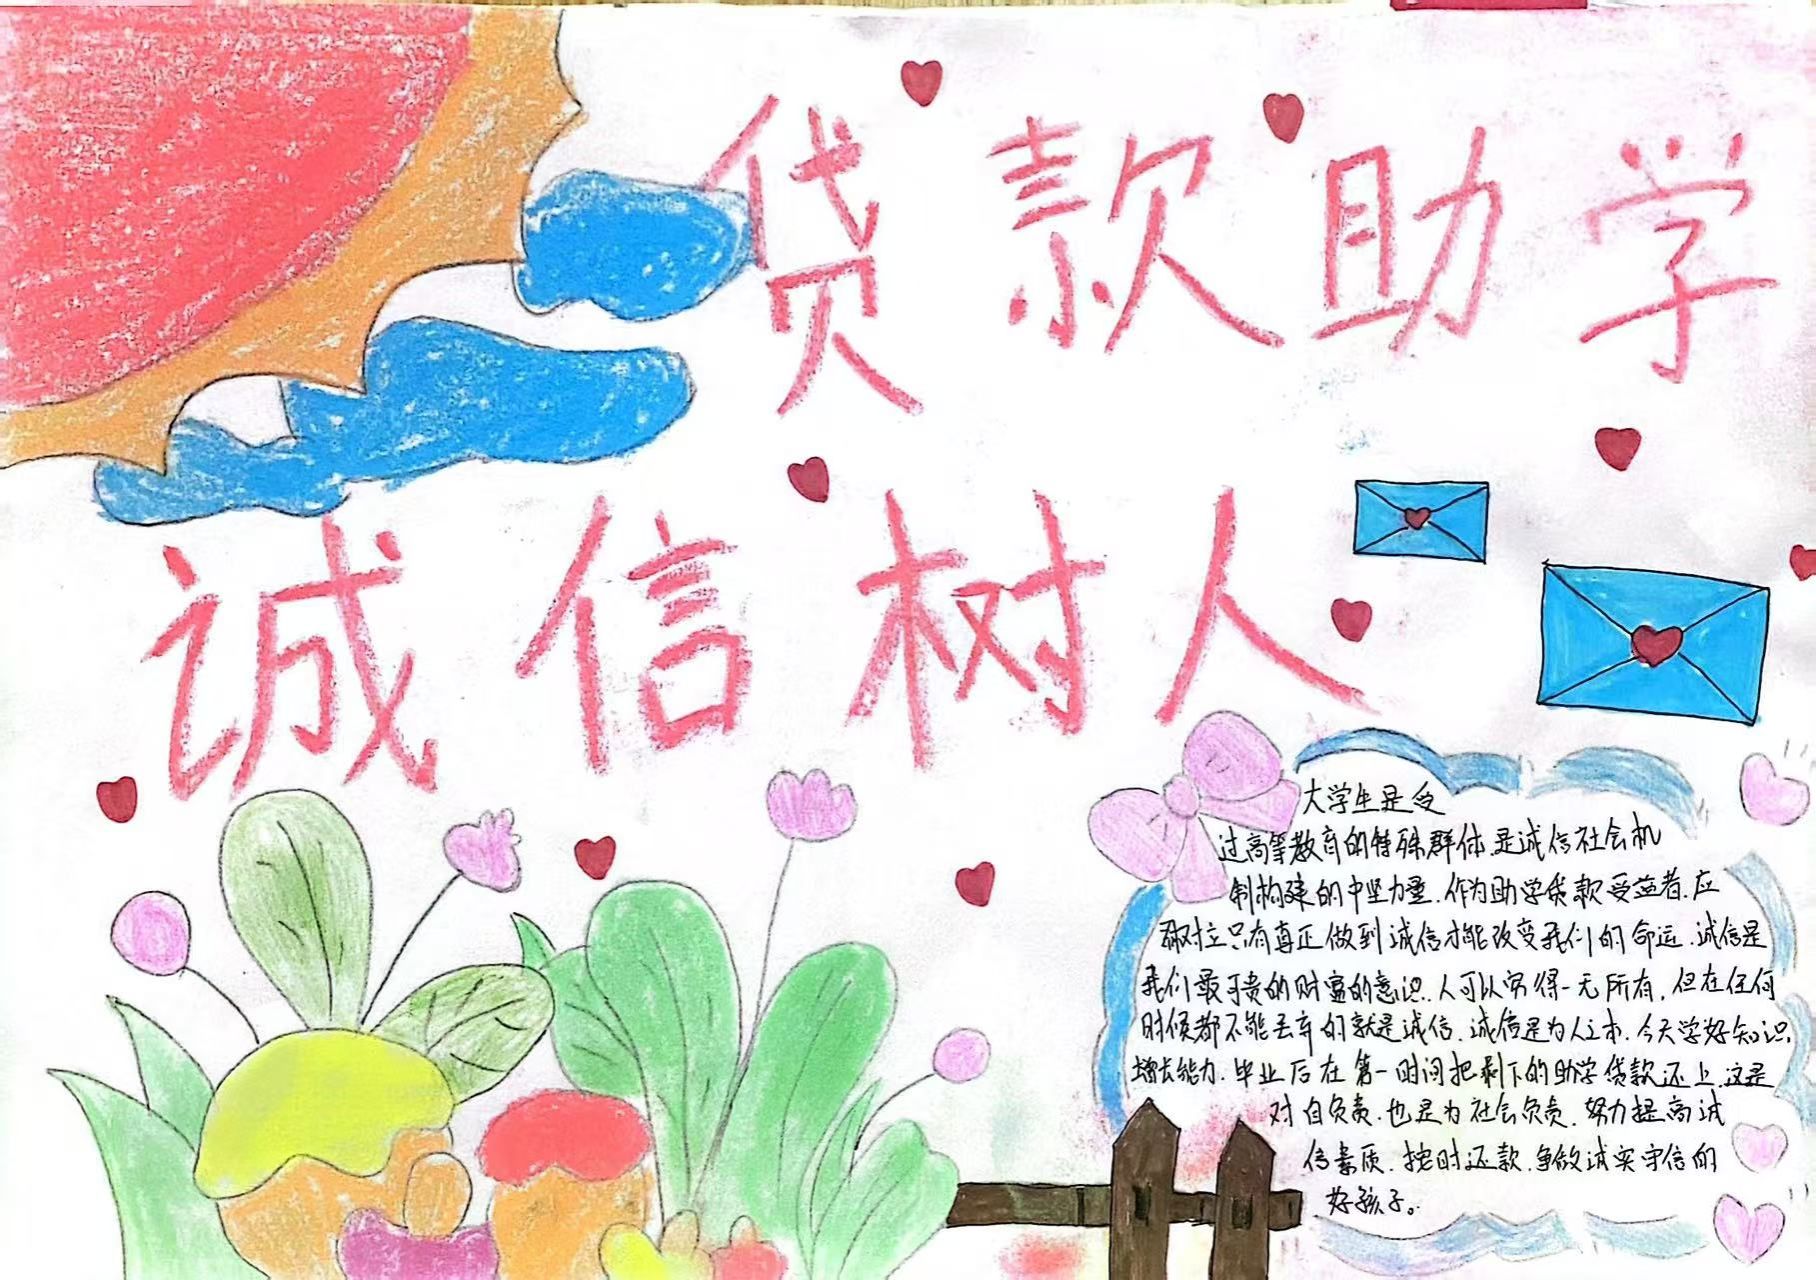 贷款助学
诚信树人
大学生是受
过高等教育的特殊群体.是诚信社会机
制构建的中坚力量.作为助学贷款受益者.应
树立只有真正做到诚信才能改变我们的命运.诚信是
我们最可贵的财富的意识.人可以穷得一无所有,但在任何
时候都不能丢弃的就是诚信.诚信是为人之本.今天学好知识,
增长能力.毕业后在第一时间把剩下的助学贷款还上.这是
对自负责.也是为社会负责.努力提高诚
信素质.按时还款.争做诚实守信的
好孩子。